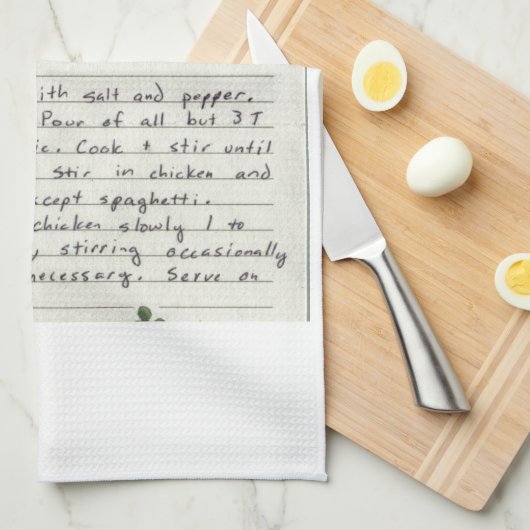 ith salt and pepper.
Pour of all but 3 T
ic. Cook + stir until
stir in chicken and
cept spaghetti.
chicken slowly 1 to
y stirring occasionally
necessary. Serve on